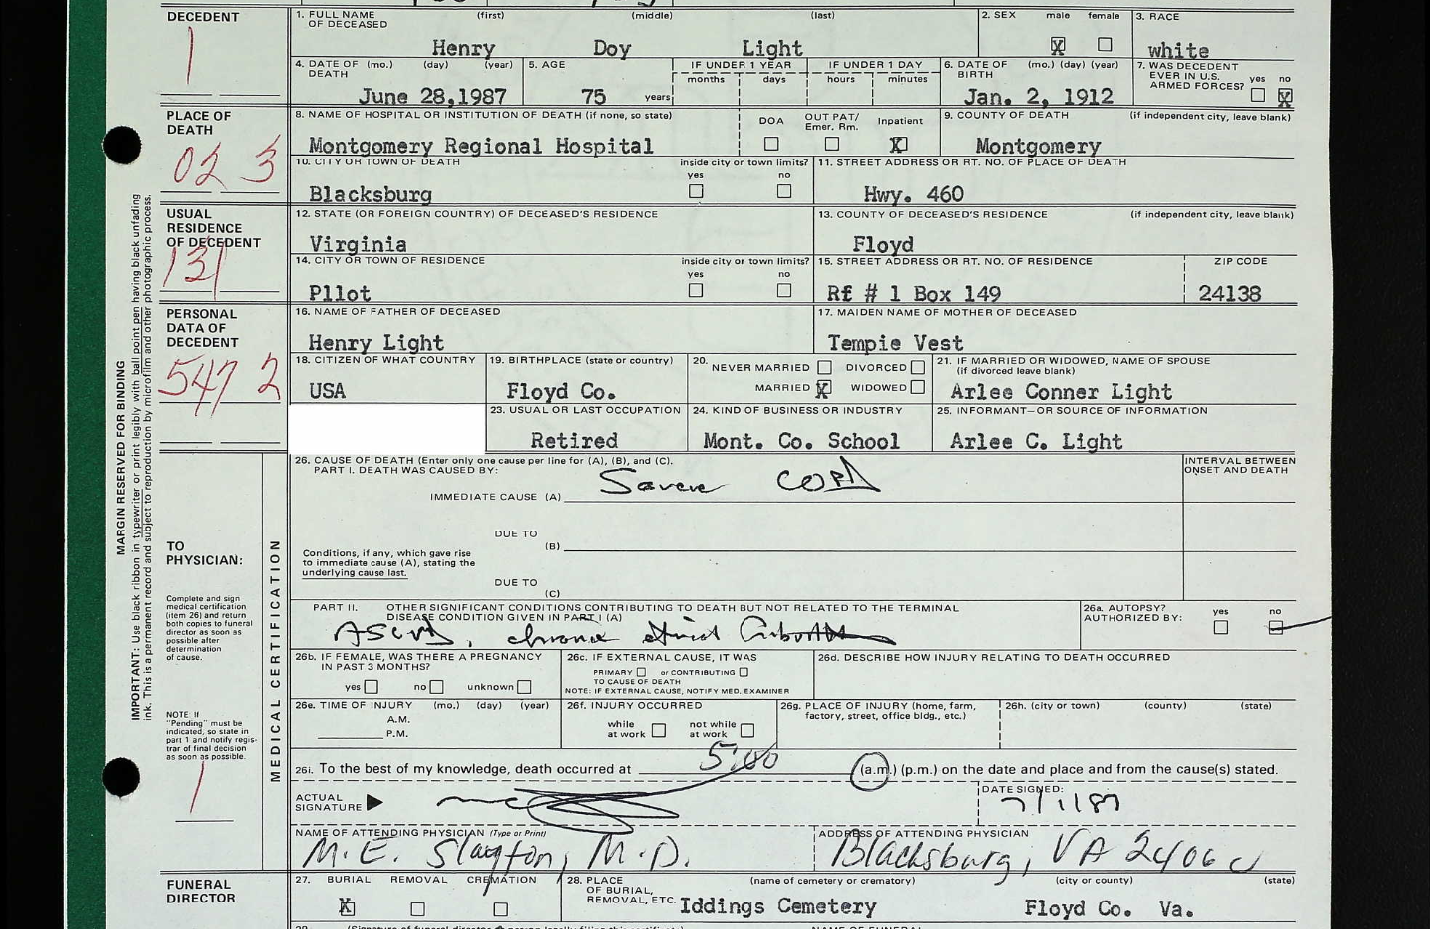 DECEDENT
1. FULL NAME OF DECEASED (first) (middle) (last)
Henry Doy Light
2. SEX male female
X
3. RACE
white
4. DATE OF DEATH (mo.) (day) (year)
June 28,1987
5. AGE
75 years
IF UNDER 1 YEAR months days
IF UNDER 1 DAY hours minutes
6. DATE OF BIRTH (mo.) (day) (year)
Jan. 2, 1912
7. WAS DECEDENT EVER IN U.S. ARMED FORCES? yes no
X
PLACE OF DEATH
02 3
8. NAME OF HOSPITAL OR INSTITUTION OF DEATH (if none, so state)
Montgomery Regional Hospital
DOA OUT PAT/ Emer. Rm. Inpatient
X
9. COUNTY OF DEATH (if independent city, leave blank)
Montgomery
10. CITY OR TOWN OF DEATH inside city or town limits? yes no
Blacksburg
11. STREET ADDRESS OR RT. NO. OF PLACE OF DEATH
Hwy. 460
USUAL RESIDENCE OF DECEDENT
131
12. STATE (OR FOREIGN COUNTRY) OF DECEASED'S RESIDENCE
Virginia
13. COUNTY OF DECEASED'S RESIDENCE (if independent city, leave blank)
Floyd
14. CITY OR TOWN OF RESIDENCE inside city or town limits? yes no
Pllot
15. STREET ADDRESS OR RT. NO. OF RESIDENCE
# 1 Box 149
ZIP CODE
24138
PERSONAL DATA OF DECEDENT
547 2
16. NAME OF FATHER OF DECEASED
Henry Light
17. MAIDEN NAME OF MOTHER OF DECEASED
Tempie Vest
18. CITIZEN OF WHAT COUNTRY
USA
19. BIRTHPLACE (state or country)
Floyd Co.
20. NEVER MARRIED DIVORCED
MARRIED X WIDOWED
21. IF MARRIED OR WIDOWED, NAME OF SPOUSE (if divorced leave blank)
Arlee Conner Light
23. USUAL OR LAST OCCUPATION
Retired
24. KIND OF BUSINESS OR INDUSTRY
Mont. Co. School
25. INFORMANT—OR SOURCE OF INFORMATION
Arlee C. Light
MARGIN RESERVED FOR BINDING
IMPORTANT: Use black ribbon in typewriter or print legibly with ball point pen having black unfading
ink. This is a permanent record and subject to reproduction by microfilm and other photographic process.
TO PHYSICIAN:
Complete and sign
medical certification
(item 26) and return
both copies to funeral
director as soon as
possible after
determination
of cause.
NOTE: If
"Pending" must be
indicated, so state in
part 1 and notify regis-
trar of final decision
as soon as possible.
MEDICAL CERTIFICATION
26. CAUSE OF DEATH (Enter only one cause per line for (A), (B), and (C).
PART I. DEATH WAS CAUSED BY:
INTERVAL BETWEEN ONSET AND DEATH
IMMEDIATE CAUSE (A) Severe COPD
DUE TO
(B)
Conditions, if any, which gave rise
to immediate cause (A), stating the
underlying cause last.
DUE TO
(C)
PART II. OTHER SIGNIFICANT CONDITIONS CONTRIBUTING TO DEATH BUT NOT RELATED TO THE TERMINAL
DISEASE CONDITION GIVEN IN PART I (A)
ASCVD, chronic atrial
26a. AUTOPSY? AUTHORIZED BY: yes no
26b. IF FEMALE, WAS THERE A PREGNANCY IN PAST 3 MONTHS?
yes no unknown
26c. IF EXTERNAL CAUSE, IT WAS
PRIMARY or CONTRIBUTING
TO CAUSE OF DEATH
NOTE: IF EXTERNAL CAUSE, NOTIFY MED. EXAMINER
26d. DESCRIBE HOW INJURY RELATING TO DEATH OCCURRED
26e. TIME OF INJURY (mo.) (day) (year)
A.M.
P.M.
26f. INJURY OCCURRED
while at work not while at work
26g. PLACE OF INJURY (home, farm, factory, street, office bldg., etc.)
26h. (city or town) (county) (state)
26i. To the best of my knowledge, death occurred at 5:00 (a.m.) (p.m.) on the date and place and from the cause(s) stated.
ACTUAL SIGNATURE
DATE SIGNED:
7/1/87
NAME OF ATTENDING PHYSICIAN (Type or Print)
M.E. Slayton, M.D.
ADDRESS OF ATTENDING PHYSICIAN
Blacksburg, VA
FUNERAL DIRECTOR
27. BURIAL REMOVAL CREMATION
X
28. PLACE OF BURIAL, REMOVAL, ETC. (name of cemetery or crematory) (city or county) (state)
Iddings Cemetery Floyd Co. Va.